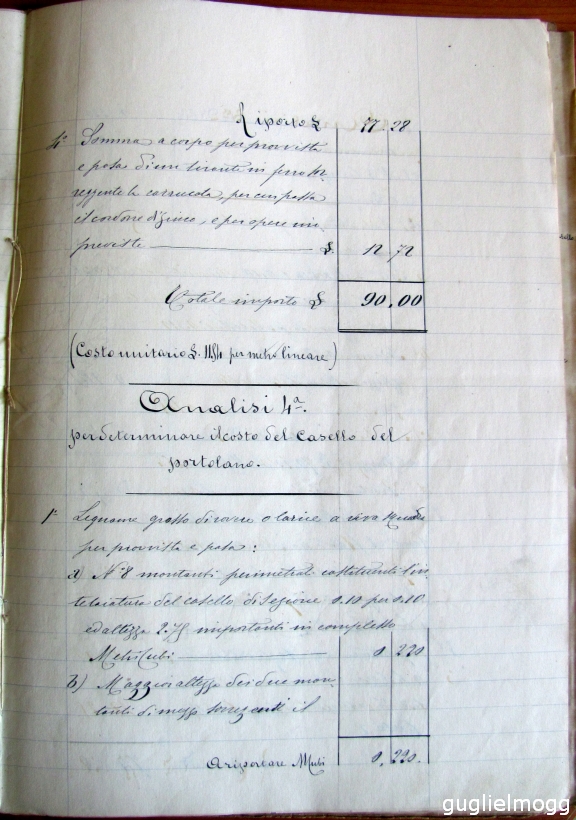 Riporto £ 77.28
4° Somma a corpo per provvista
e posa di un tirante in ferro sor-
reggente la carrucola, per cui passa
il cordone d'zinco, e per opere im-
previste £ 12 72
Totale importo £ 90.00
(Costo unitario £. 11,54 per metro lineare)
Analisi 4a.
per determinare il costo del Casello del
portolano.
1° Legname grosso di rovere o larice a viva
per provvista e posa:
a) N° 8 montanti perimetrali costituenti l'in-
telaiatura del casello di sezione 0.10 per 0.10
ed altezza 2.75 importanti in complesso
Metri Cubi 0 220
b) Maggior altezza dei due mon-
tanti di mezzo sorreggenti il
A riportare Mcubi 0.220.
guglielmogg